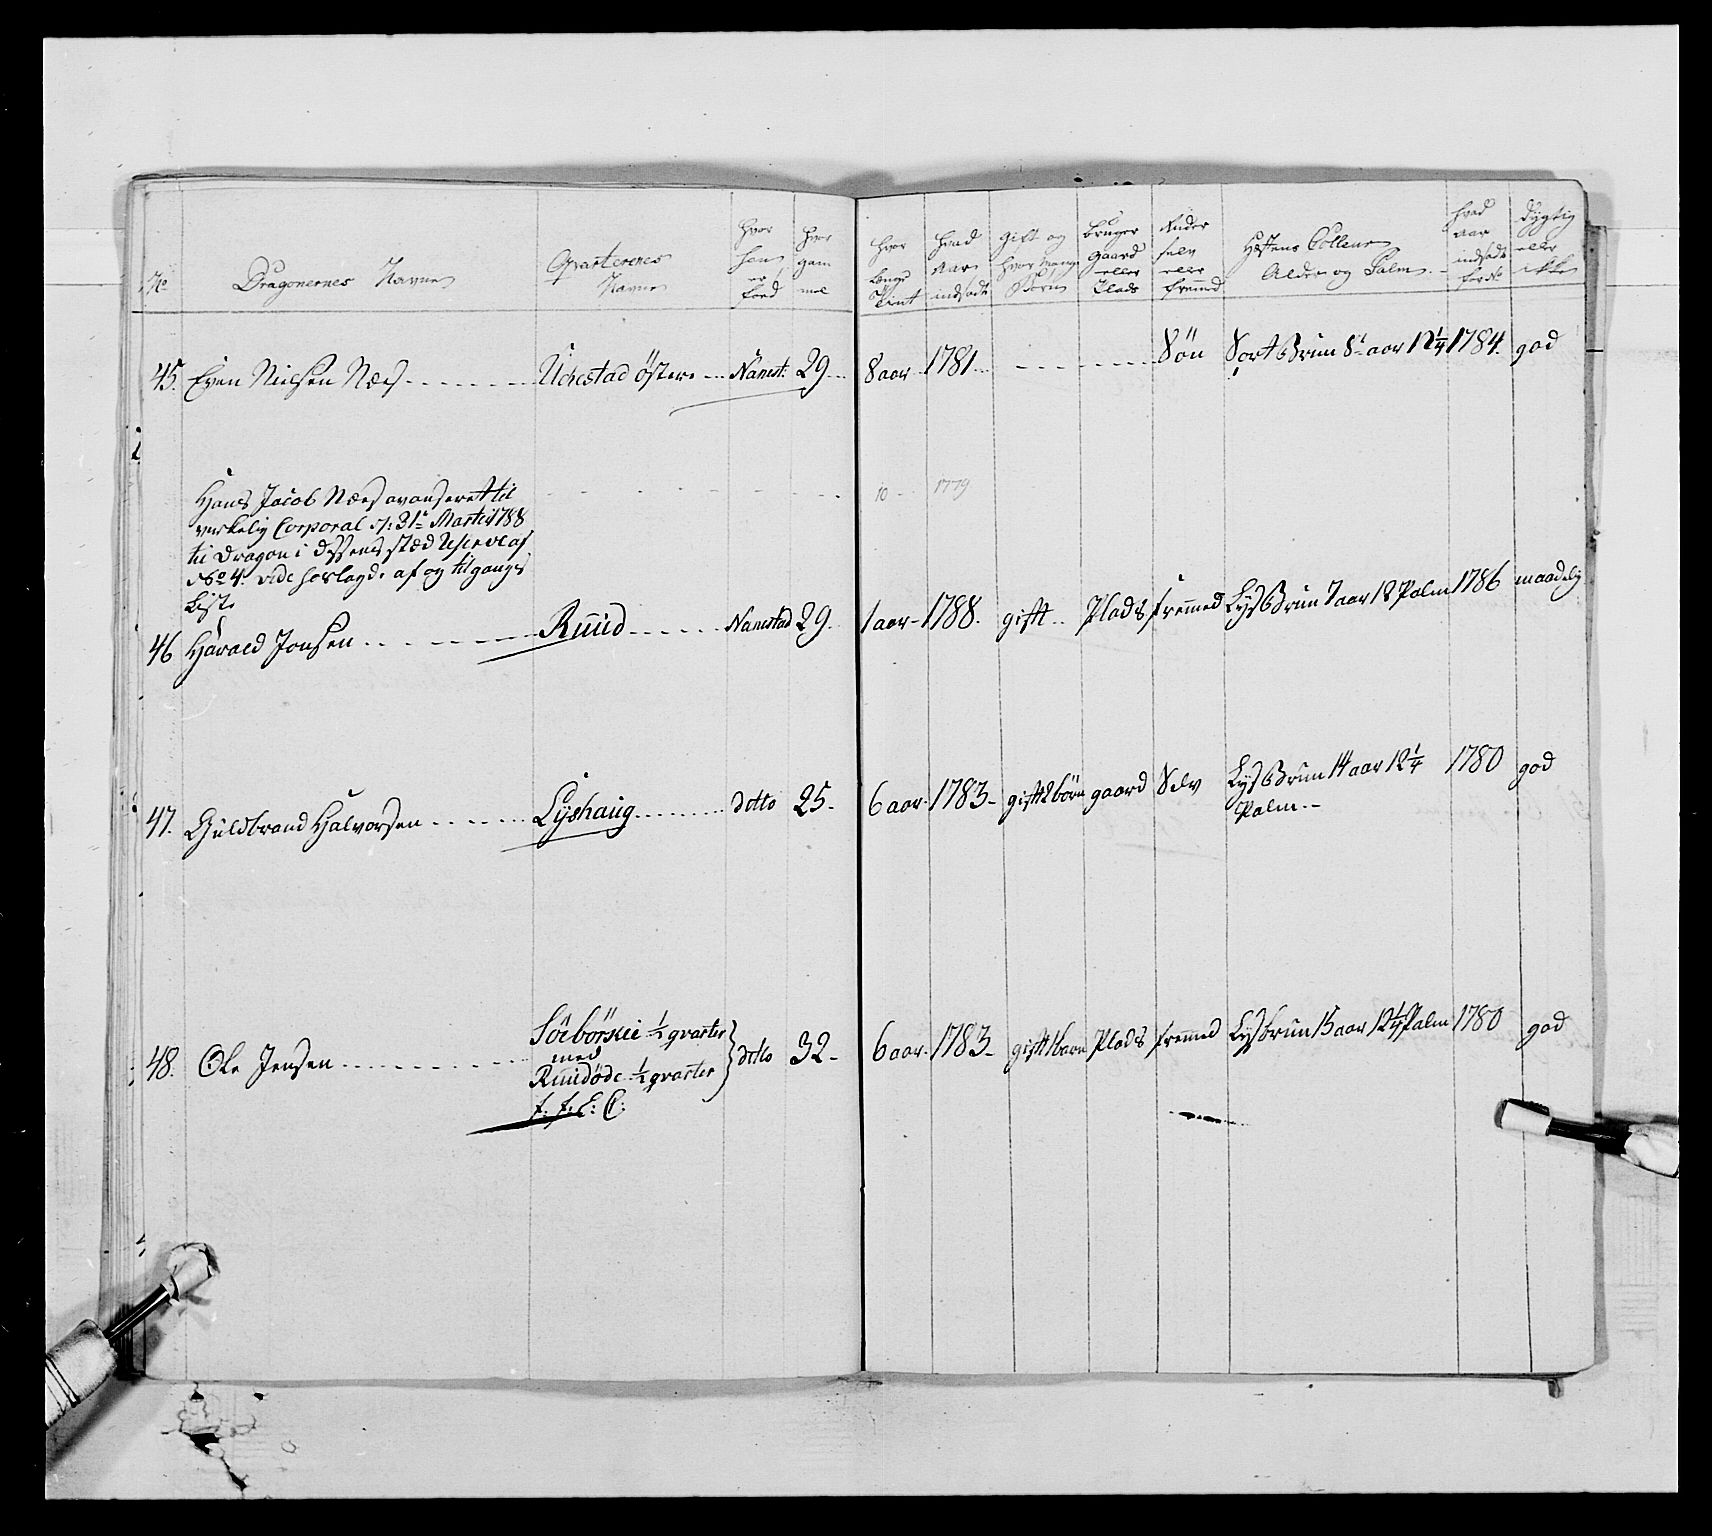 No Dragonernes Navne Qvarterernes Navne Hvor han er föed Hvor gam mel Hvor længe Tient Hvad Aar indsadt gift og Hvor Mange Börn bruger gaard eller Plads Ruder selv eller fremmed Hæstens Coulleur Alder og Palm hvad aar indsadt dygtig eller ikke
45. Even Nielsen Næs Östere Nanest: 29 8 aar 1781 Sön Sort Brun 8 aar 12 1/4 1784. god
Hans Jacob Næs avanseret til
virkelig Corporal d: 31te Martii 1788
til Dragon i dessens stæd
No 4. vide forlagde af og tilgangs
Liste 10 1779
46 Harald Jonsen Ruud Nanestad 29. 1 aar 1788. gift Plads fremmed Lys Brun 7 aar 12 Palm 1786 maadelig
47. Guldbrand Halvorsen Lyshaug ditto 25. 6 aar 1783 gift 2 börn gaard Selv Lys Brun 14 aar 12 1/4 Palm 1780 god
48. Ole Jensen 1/2 qvarter
med
Ruudöde 1/2 qvarter ditto 32 6 aar 1783 gift 1 barn Plads fremmed Lys brun 15 aar 12 1/4 Palm 1780 god